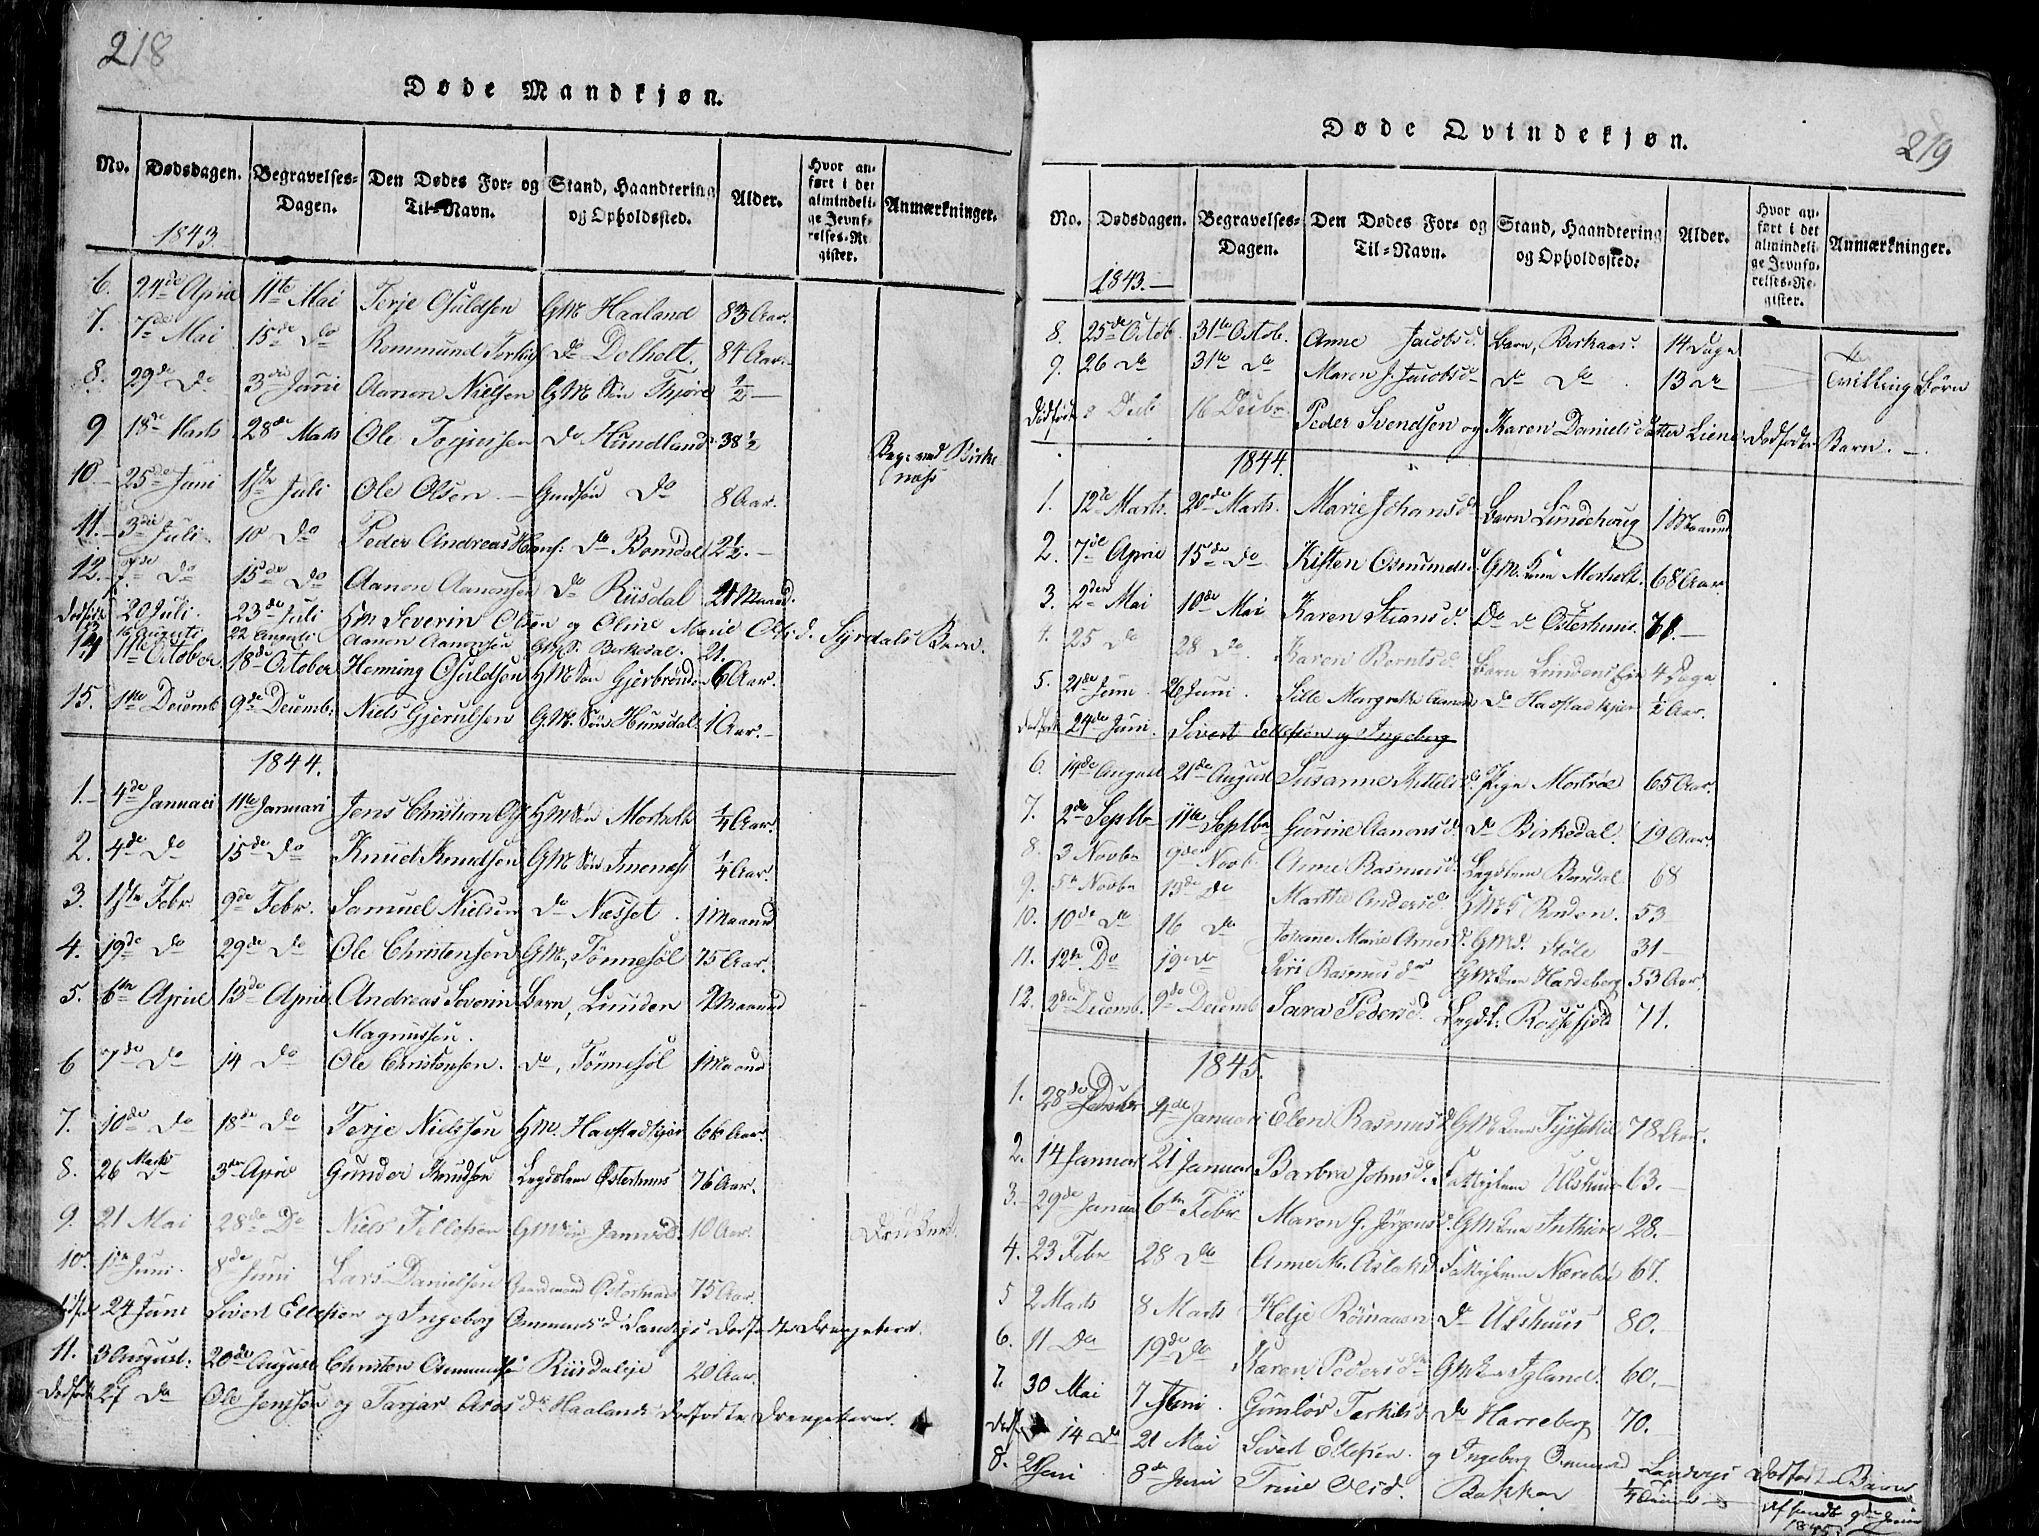 218
Døde Mandkjøn.
No. Dødsdagen. Begravelses-Dagen. Den Dødes For- og Til-Navn. Stand, Haandtering og Opholdssted. Alder. Hvor anført i det almindelige Jevnførelses-Register. Anmærkninger.
1843.
6. 24de April 11te Mai Terje Osuldsen GM. Haaland 83 Aar.
7. 7de Mai 15de Do Rommund Do Dolholt. 84 Aar.
8. 29de Do 3die Juni Aanon Nielsen GM. Søn 1/2 —
9 18de Marts 28de Marts Ole Do Hundland 38 1/2
10 25de Juni 1ste Juli Ole Olsen — Do 8 Aar. Beg. ved Birkenæss
11. 3die Juli 10 Do Peder Andreas Hans: Do Bomdal 2 1/2. —
12. 7de Do 15de Do Aanon Aanonsen Do Riisdal Maand.
Dødfødt 20 Juli 23de Juli HM Severin Olsen og Oline Marie Olsd. Syrdals Barn.
13 16 Augusti 22 Augusti Aanon Aanonsen GMS. Birkedal. 21.
14 11te October 18de October Henning Osuldsen HM Søn 6 Aar.
15. 1ste Decemb 9de Decemb: Niels Gjerulsen GM. Søn Hunsdal 1 Aar. —
1844.
1. 4de Januari 11te Januari Jens Christian HM Søn Mosholt 1/4 Aar.
2. 4de Do 15de Do Knud Knudsen GM. Søn 1/4 Aar.
3. 1ste Febr 9de Febr. Samuel Nielsen Do Næsset. 1 Maaned
4. 19de Do 29de Do Ole Christensen GM, Tönnesöl 75 Aar.
5. 6te April 13de April Andreas Severin Barn, Lunden Maaned
Magnussen.
6 7de Do 14 Do Ole Christensen. Do, Tönnesöl 1 Maaned
7. 10de Do 18de Do Terje Nielssen HM. Havstadkjær 66 Aar.
8. 26 Marts 3die April Gunder Knudsen Lægdslem Osterhus 76 Aar.
9. 21 Mai 28de Do Niels Tellefsen GM Søn 10 Aar. Druknet.
10. 1ste Juni. 8de Juni Lars Danielsen Gaardmand Osterhus 75 Aar.
Dødfødt 24 Juni Sivert Ellefsen og Ingeborg Ommundsd. Landvigs Dødfødte Drengebarn.
11. 3 August. 20de August Christen Osmundsen Riisdal 20 Aar.
Dødfødt 27 Do Ole Jenssen og Tarjar Aros dr. Haalands dødfødte Drengebarn.
219
Døde Qvindekjøn.
No. Dødsdagen. Begravelses-Dagen. Den Dødes For- og Til-Navn. Stand, Haandtering og Opholdssted. Alder. Hvor anført i det almindelige Jevnførelses-Register. Anmærkninger.
1843. —
8. 25de Octob. 31te Octob. Anne Jacobsd. Barn, Birkaas. 14 Dage
9. 26 Do 31te Do Maren J. Jacobsd Do Do 13 Do Tvilling Børn
Dødfødt Decb 16 Decbr. Peder Svendsen og Karen Danielsdatter Liene Dødfødte Barn. —
1844.
1. 12te Marts. 20de Marts. Marie Johansd. Barn Lundehoug 1 Maaned
2. 7de April 15de Do Kisten Osmundsd GM. Kone Mosholt. 68 Aar.
3. 2den Mai 10de Mai Karen Stiansd. Do Do Osterhuus 71. —
4. 25 Do 28 Do Karen Berntsd. Barn 4 Dage.
5. 21de Juni 26 Juni. Sille Margrethe Do Havstadkjær 1/2 Aar.
Dødfødt 24de Juni. Sivert Ellefsen og Ingeborg
6. 14de August 21de August Susanne Pige Mostrøe 65 Aar.
7. 2de Septb 11te Septbr Gurine Aanonsd. Do Birkedal. 19 Aar.
8. 3 Novbr 9de Novb. Anne Rasmusd Lægdslem Bomdal 68
9. 5te Novbr 13de Do Marthe Andersd HMK Rinden. 53
10. 10de Do 16 Do Johanne Marie Arnesd. GMd. Støle 31 —
11. 12te Do 19de Do Siri Rasmusd GM Kone Hardeberg 53 Aar
12. 2den Decemb. 9de Decemb Sara Pedersd. Lægdl. 71.
1845.
1. 28de Decbr 4de Januari Elen Rasmusd. GM Kone 78 Aar.
2. 14 Januar 21 Januar Barbra Johnsd. Fattiglem Ulshuus 63. —
3. 29de Januar 6te Febr. Maren G. Jörgensd. GM Kone 28. —
4. 23 Febr 28 Do Anne M. Aslaksd. Fattiglem Nærebøe 67.
5 2 Marts 8 Marts Helje Do Ulshuus 80. —
6. 11 Do 19de Do Karen Pedersd GM Kone Igland. 60. —
7. 30 Mai 7 Juni. Gunlov Terkilsd. Do Harreberg 70. —
Dødf. 14 Do 21 Mai Sivert Ellefsen og Ingeborg Ommund Landvigs Dødfødte Barn
8. 2 Juni 8de Juni Trine Olsd. Bakken 1/4
1845